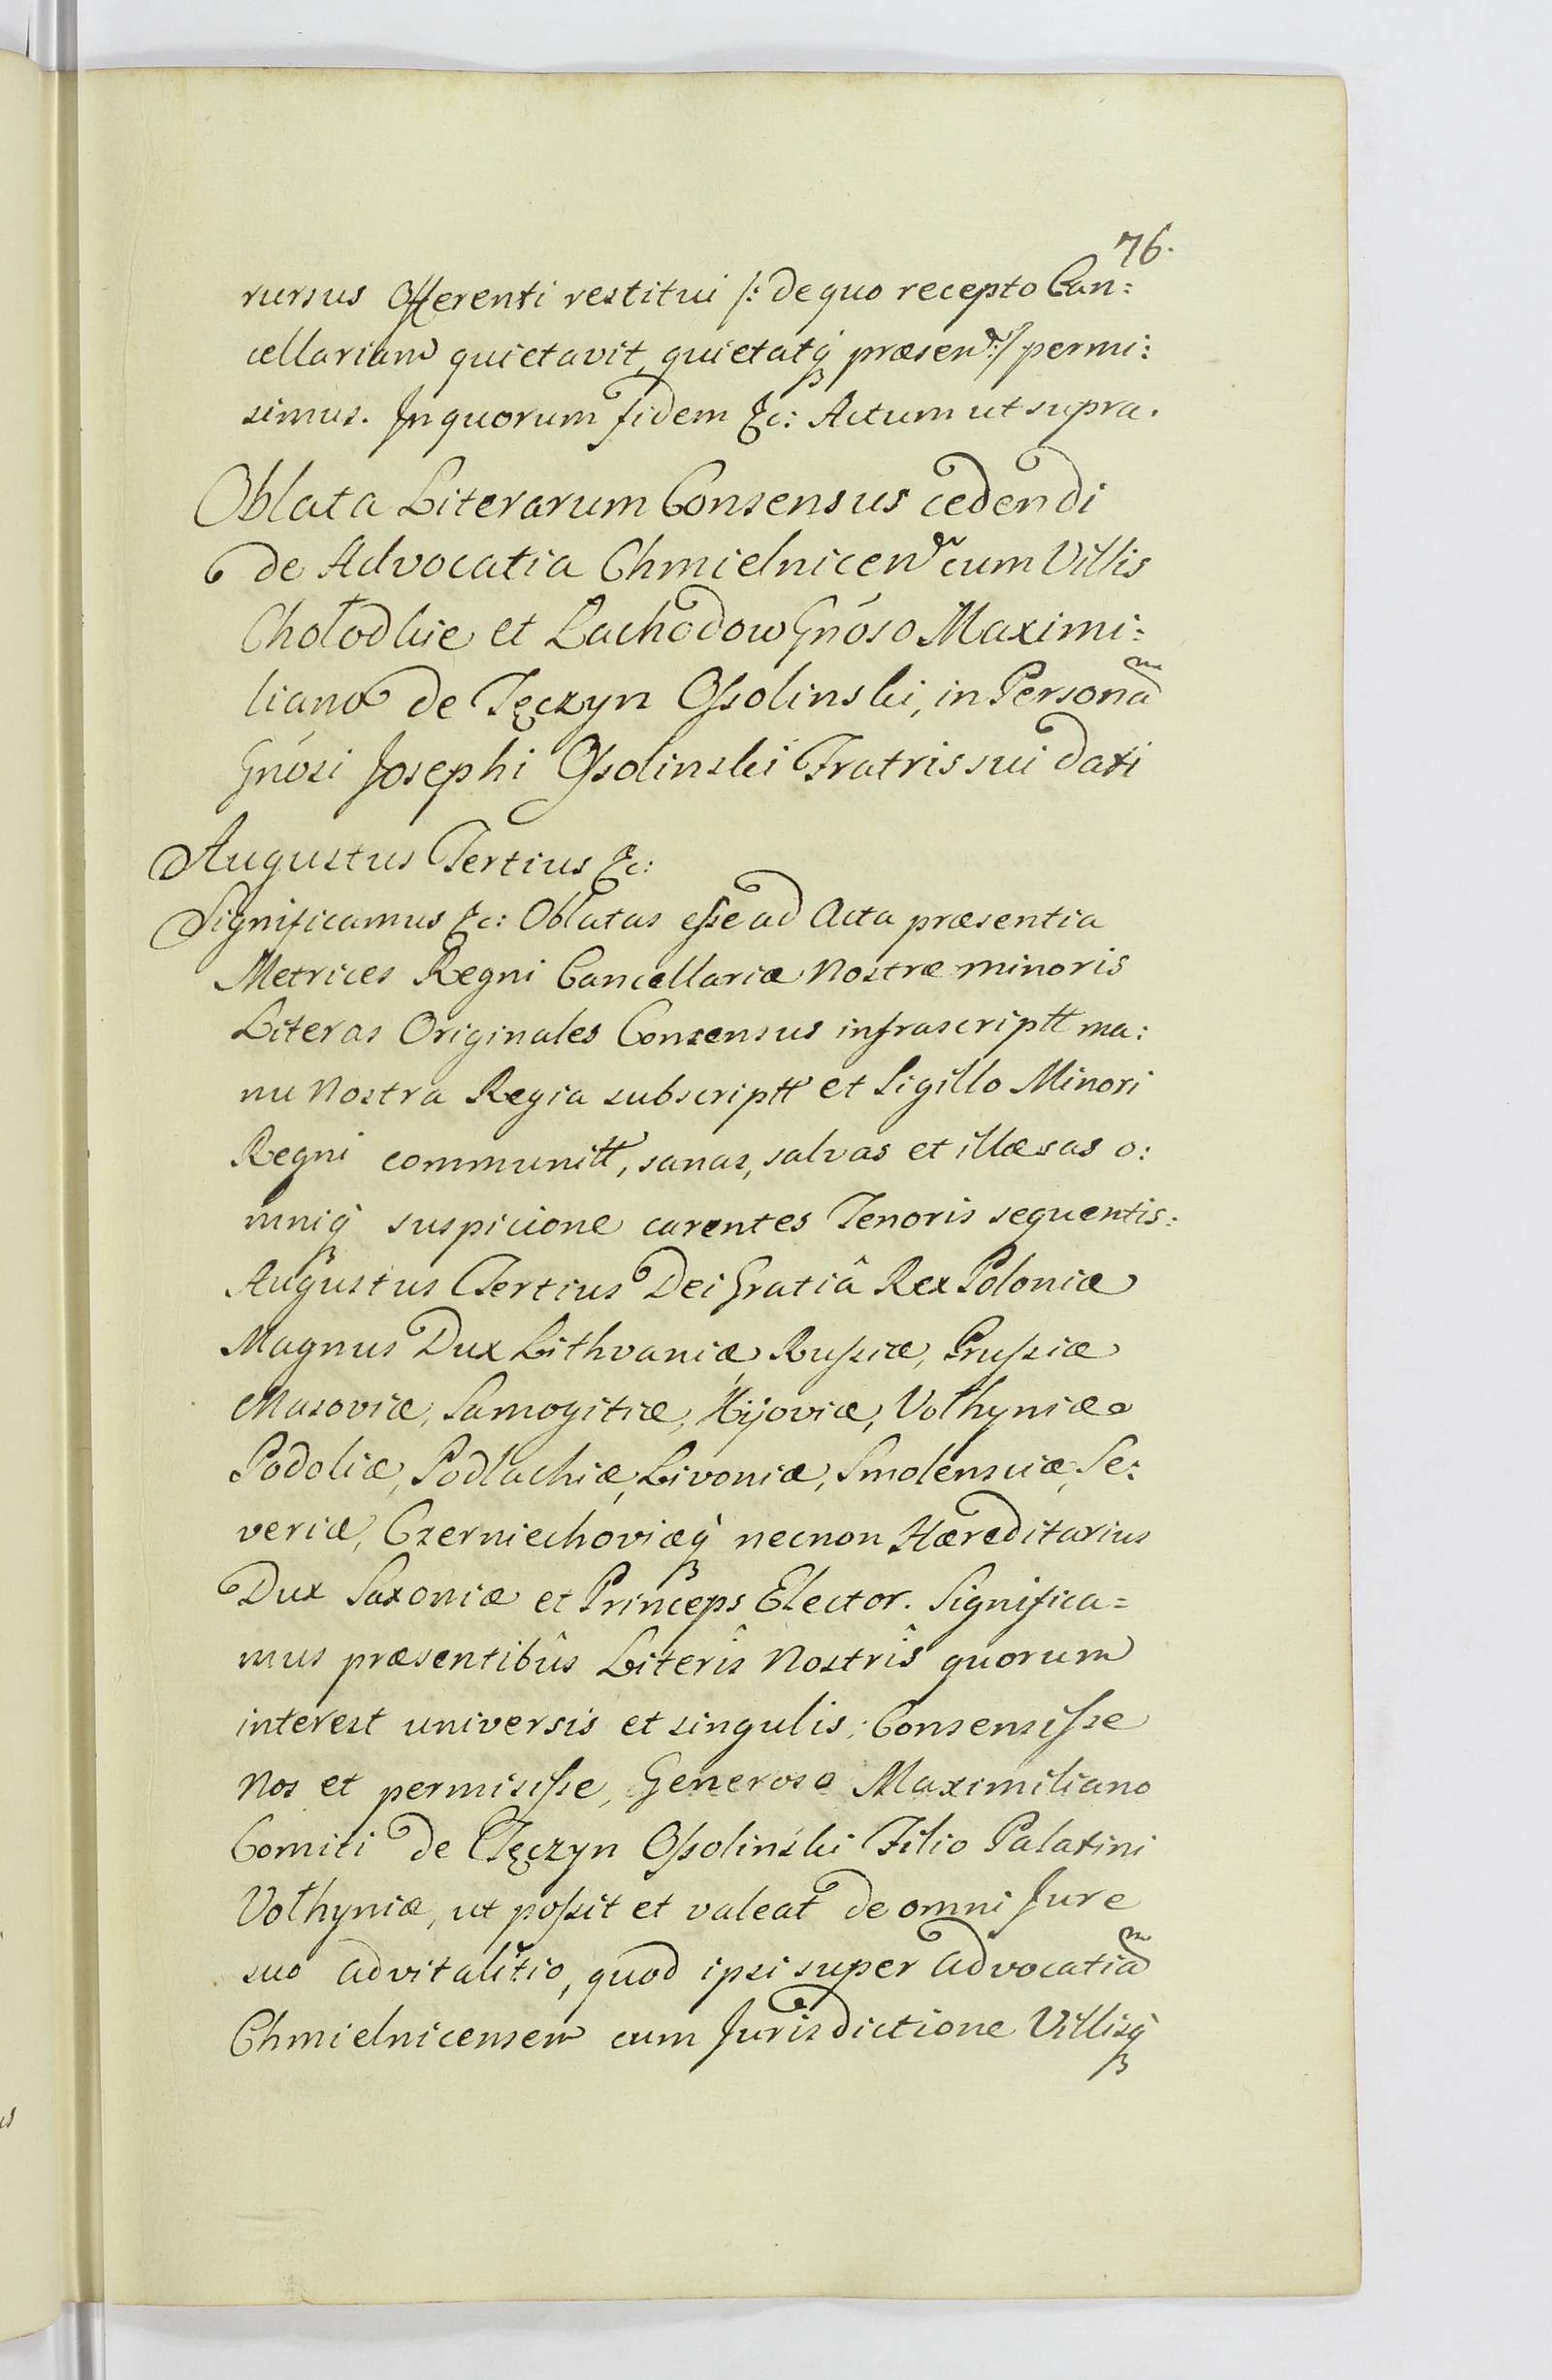 76.
rursus Offerenti restitui /: de quo recepto Can:
cellariam quietavit, quietatq́ præsen:/ permi:
simus. In quorum fidem &c: Actum ut supra.
Oblata Literarum Consensus cedendi
de Advocatia Chmielnicen cum Villis
Chołodkie et Lachodow Gnóso Maximi:
liano de Tęczyn Ossolinski, in Personam
Gnósi Josephi Ossolinski Fratris sui dati
Augustus Tertius &c:
Significamus &c: Oblatas esse ad Acta præsentia
Metrices Regni Cancellariæ Nostræ minoris
Literas Originales Consensus infrascriptt ma:
nu Nostra Regia subscriptt et Sigillo Minori
Regni communitt, sanas, salvas et illæsas o:
mniq́ suspicione carentes Tenoris sequentis:
Augustus Tertius Dei Gratiâ Rex Poloniæ
Magnus Dux Lithvaniæ, Russiæ, Prussiæ
Masoviæ, Samogitiæ, Kijoviæ, Volhyniæ
Podoliæ, Podlachiæ, Livoniæ, Smolensciæ, Se:
veriæ, Czerniechoviæq́ necnon Hæreditarius
Dux Saxoniæ et Princeps Elector. Significa=
mus præsentibûs Literîs Nostrîs quorum
interest universis et singulis; Consensisse
Nos et permisisse, Generoso Maximiliano
Comiti de Tęczyn Ossolinski Filio Palatini
Volhyniæ, ut possit et valeat de omni Jure
suo advitalitio, quod ipsi super advocatiam
Chmielnicensem cum Jurisdictione Villisq́